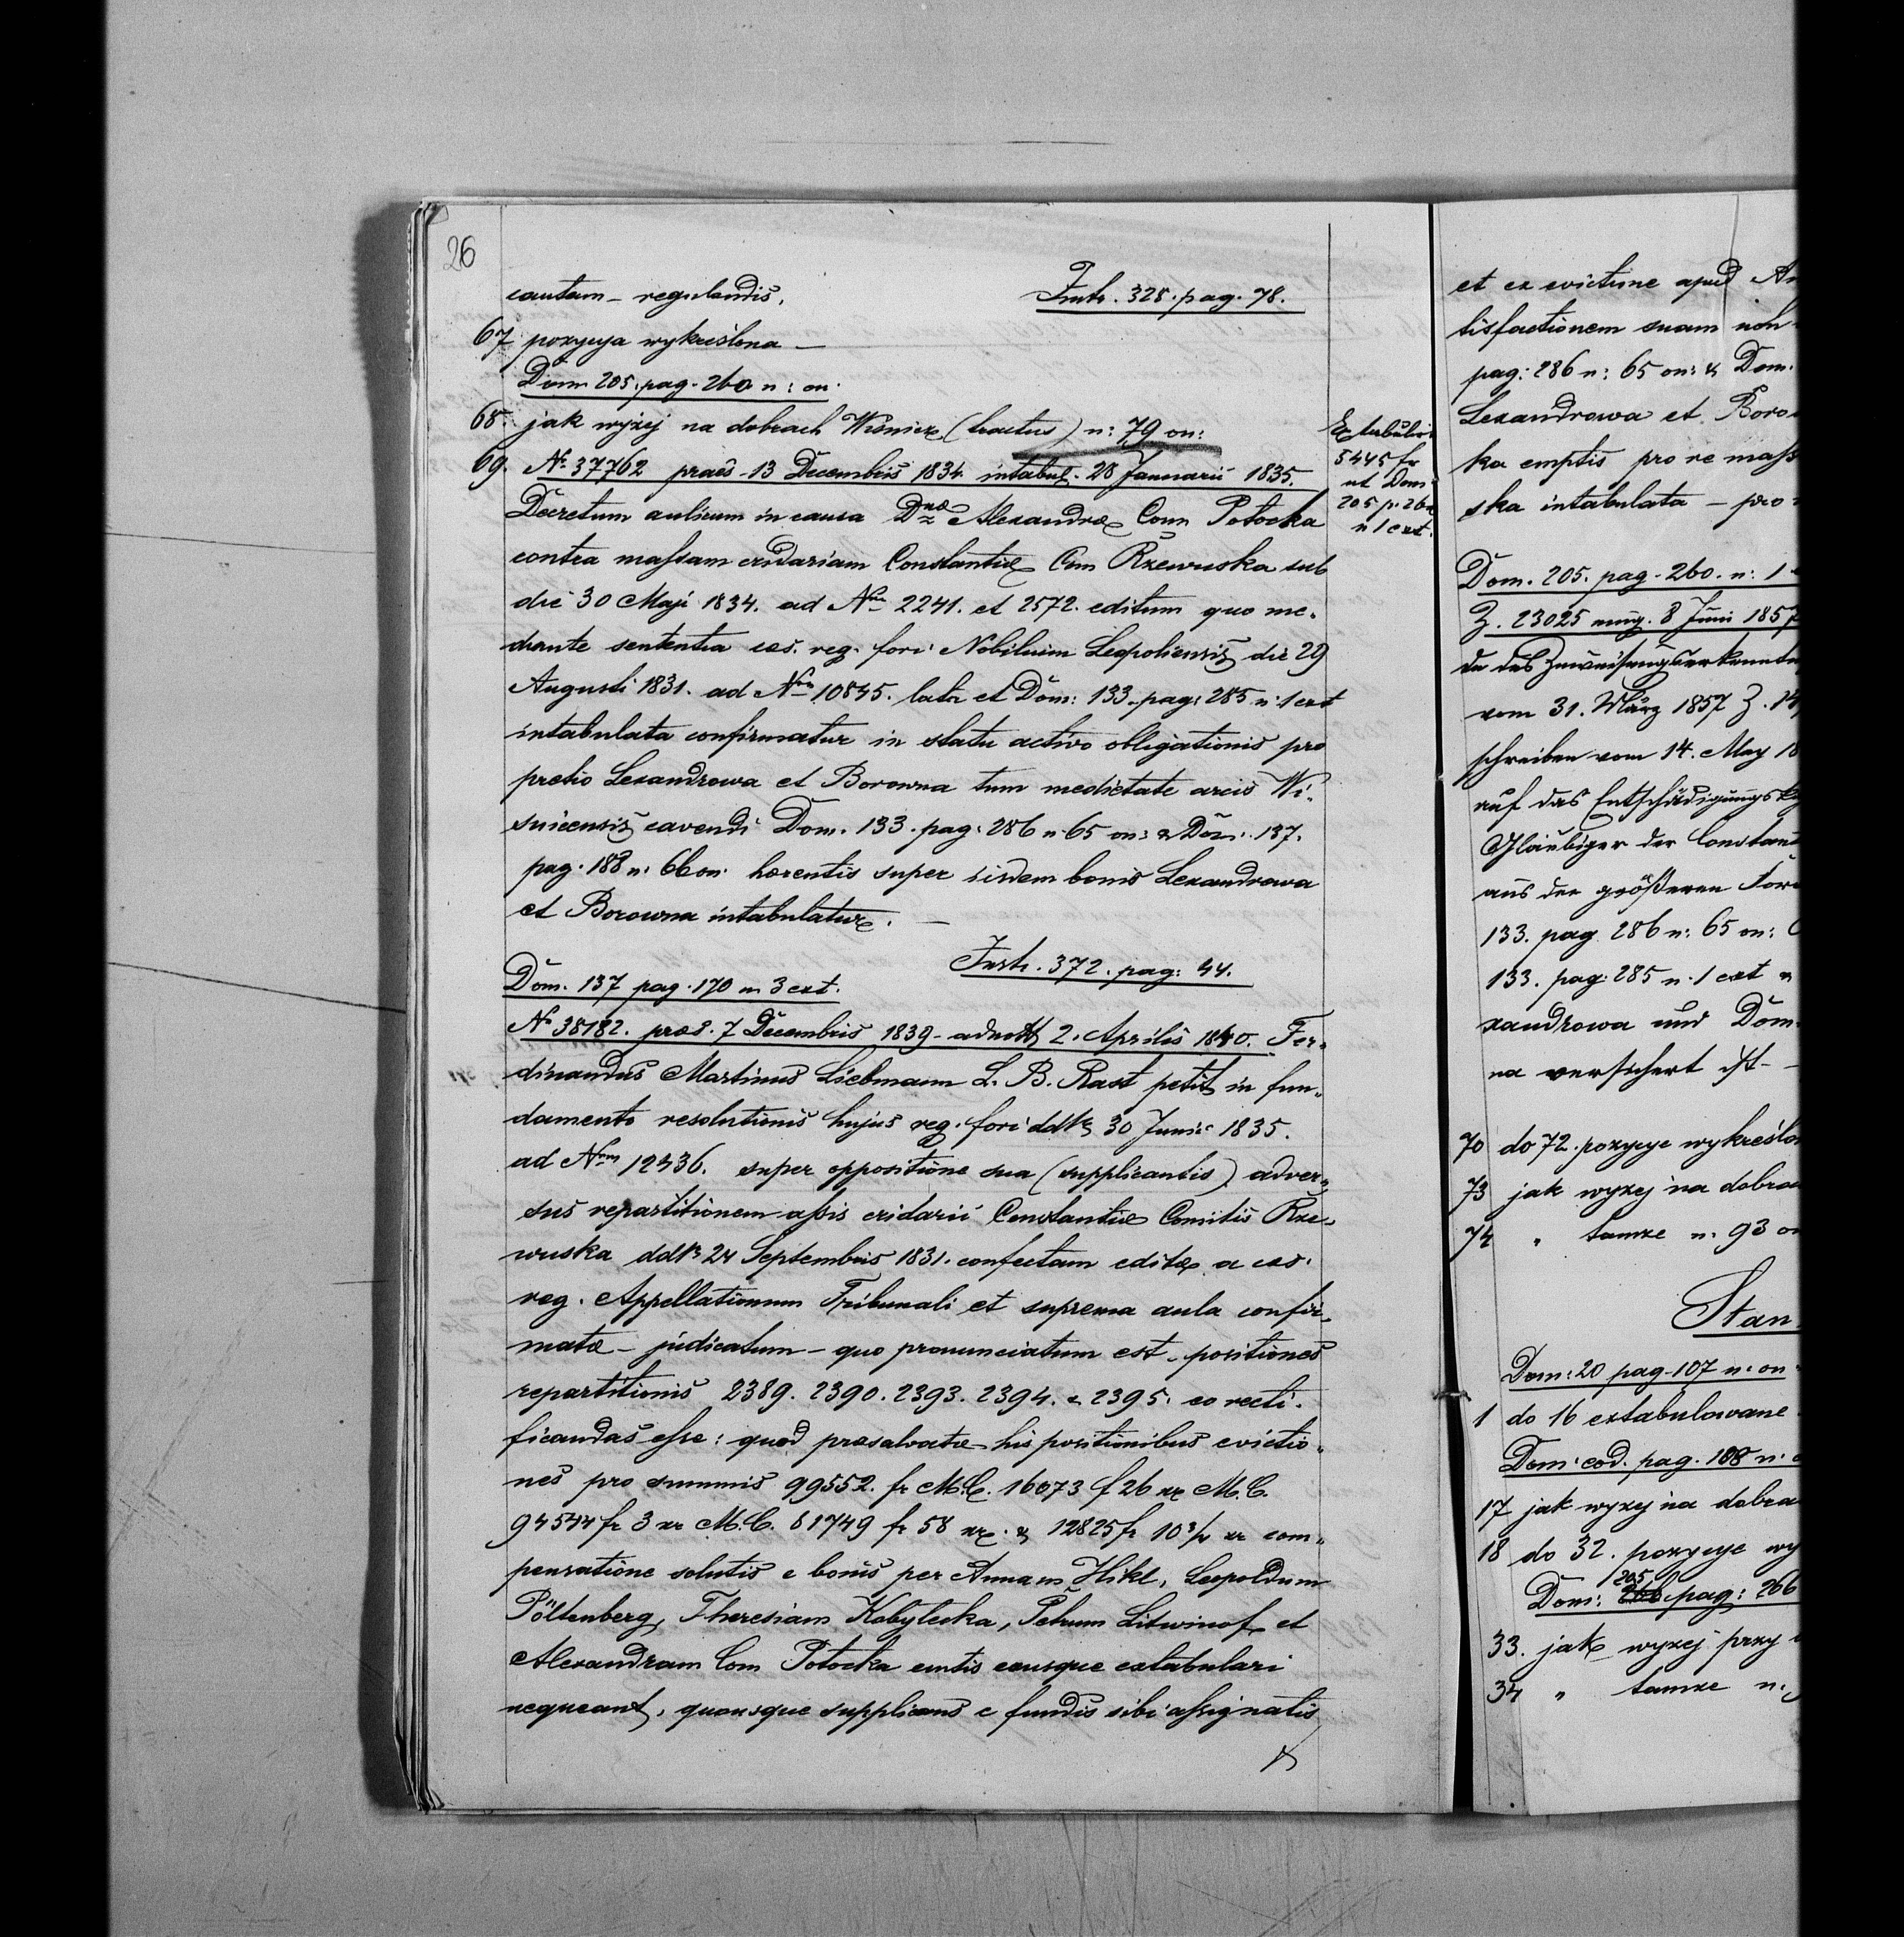 26
cautam – regulandis, Instr. 328. pag. 78.
67 pozycya wykreślona –
Dom 205. pag. 260 n: on.
68. jak wyżej na dobrach Wiśnicz (tractus) n: 79 on:
69. Nr 37762 praes. 13 Decembris 1834 intabul. 28 Januarii 1835.
Decretum aulicum in causa Dnae Alexandrae Com Potocka
contra massam cridariam Constantiae Com Rzewuska sub
die 30 Maji 1834. ad Nrm 2241. et 2572. editum quo me-
diante sententia caes. reg. fori Nobilium Leopoliensis die 29
Augusti 1831. ad Nrm 10845. lata et Dom: 133. pag: 285 n. 1 ext
intabulata confirmatur in statu activo obligationis pro
pretio Lexandrowa et Borowna tum medietate arcis Wi-
snicensis cavendi Dom. 133. pag: 286 n 65 on: & Dom. 137.
pag. 188 n. 66 on. haerentis super iisdem bonis Lexandrowa
et Borowna intabulatur. –
Instr. 372. pag: 44.
Dom. 137 pag. 170 n. 3 ext.
Nr 38182. praes. 7 Decembris 1839 – adnott 2. Aprilis 1840. Fer-
dinandus Martinus Liebmann L. B. Rast petit in fun-
damento resolutionis hujus reg. fori ddto 30 Junii 1835.
ad Nrm 12436. super oppositione sua (supplicantis) adver-
sus repartitionem assis cridarii Constantiae Comitis Rze-
wuska ddto 24 Septembris 1831. confectam editae a caes.
reg. Appellationum Tribunali et suprema aula confir-
matae – judicatum – quo pronunciatum est – positiones
repartitionis 2389. 2390. 2393. 2394. & 2395. eo recti-
ficandas esse: quod praesalvatae his positionibus evictio-
nes pro summis 99552. fr M.C. 16073 f 26 xr M.C.
94544 fr 3 xr M.C. 81749 fr 58 xr. & 12825 fr 10 3/4 xr com-
pensatione solutis e bonis per Annam Hikl, Leopoldum
Pöltenberg, Theresiam Kobylecka, Petrum Litwinof et
Alexandram Com Potocka emtis eousque extabulari
nequeant, quousque supplicans e fundis sibi assignatis
Extabulir
5445 fr
ut Dom
205 p. 260
n 1 ext.
et ex evictione apud
tisfactionem suam
pag: 286 n: 65 on: & Dom.
Lexandrowa et
ka emptis pro re mass
ska intabulata – pro
Dom. 205. pag. 260. n: 1
Z. 23025 8 Juni 1857
vom 31. März 1857 Z.
schreiben vom 14. May 18
auf das
Gläubiger der
aus der größeren
133. pag 286 n: 65 on:
133. pag: 285 n. 1 ext &
xandrowa und Dom
na versichert ist –
70 do 72. pozycye
73 jak wyzej na
74 " tamze n. 93
Stan
Dom: 20 pag. 107 n: on
1 do 16 extabulowane
Dom. eod. pag. 188 n.
17 jak wyzej na
18 do 32. pozycye
Dom: 205 pag: 266
33. jak wyzej przy
34 " tamze n.